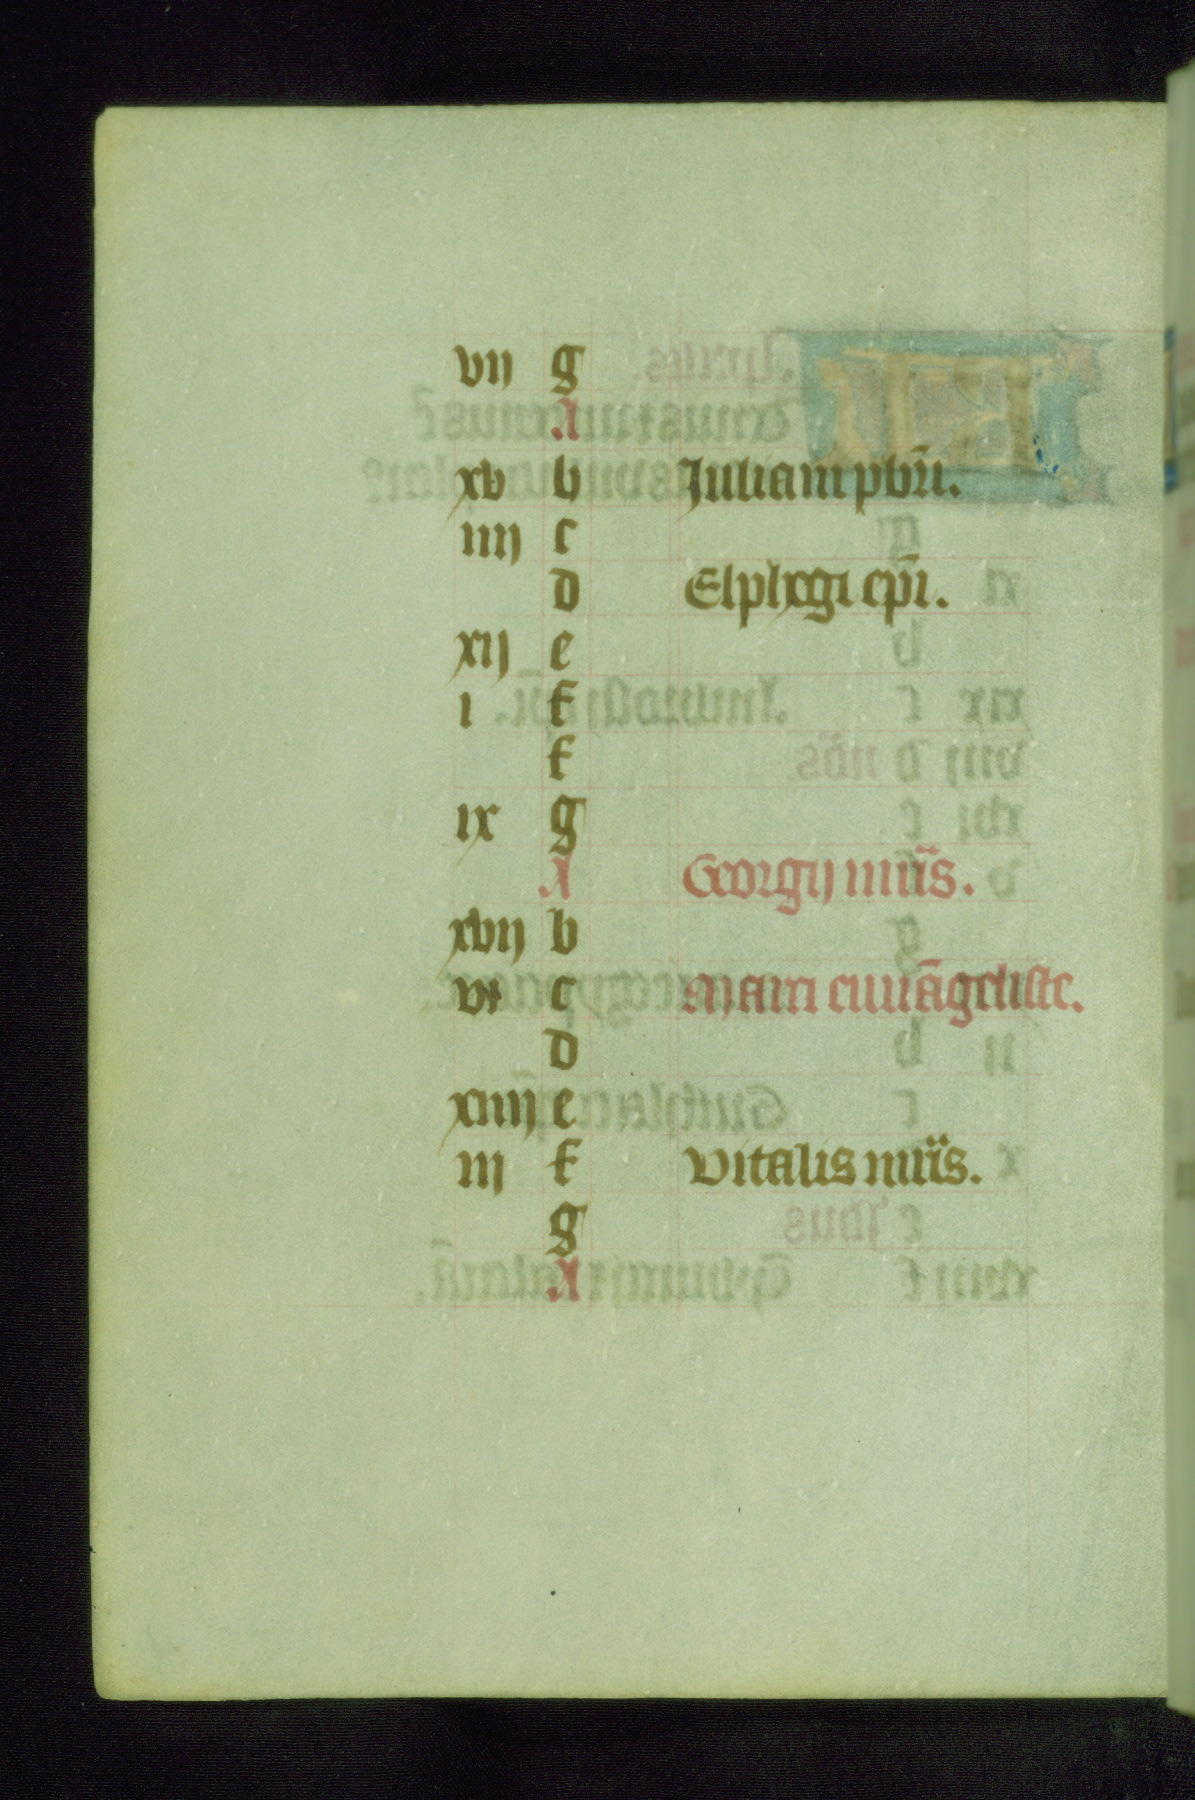 vij g
A
xv b Juliani pbri.
iiij c
d Elphegi epi.
xij e
i f
f
ix g
A Georgij mris.
xvij b
vi c Marci euuãgeliste.
d
xiiij e
iij f Vitalis mris.
g
A